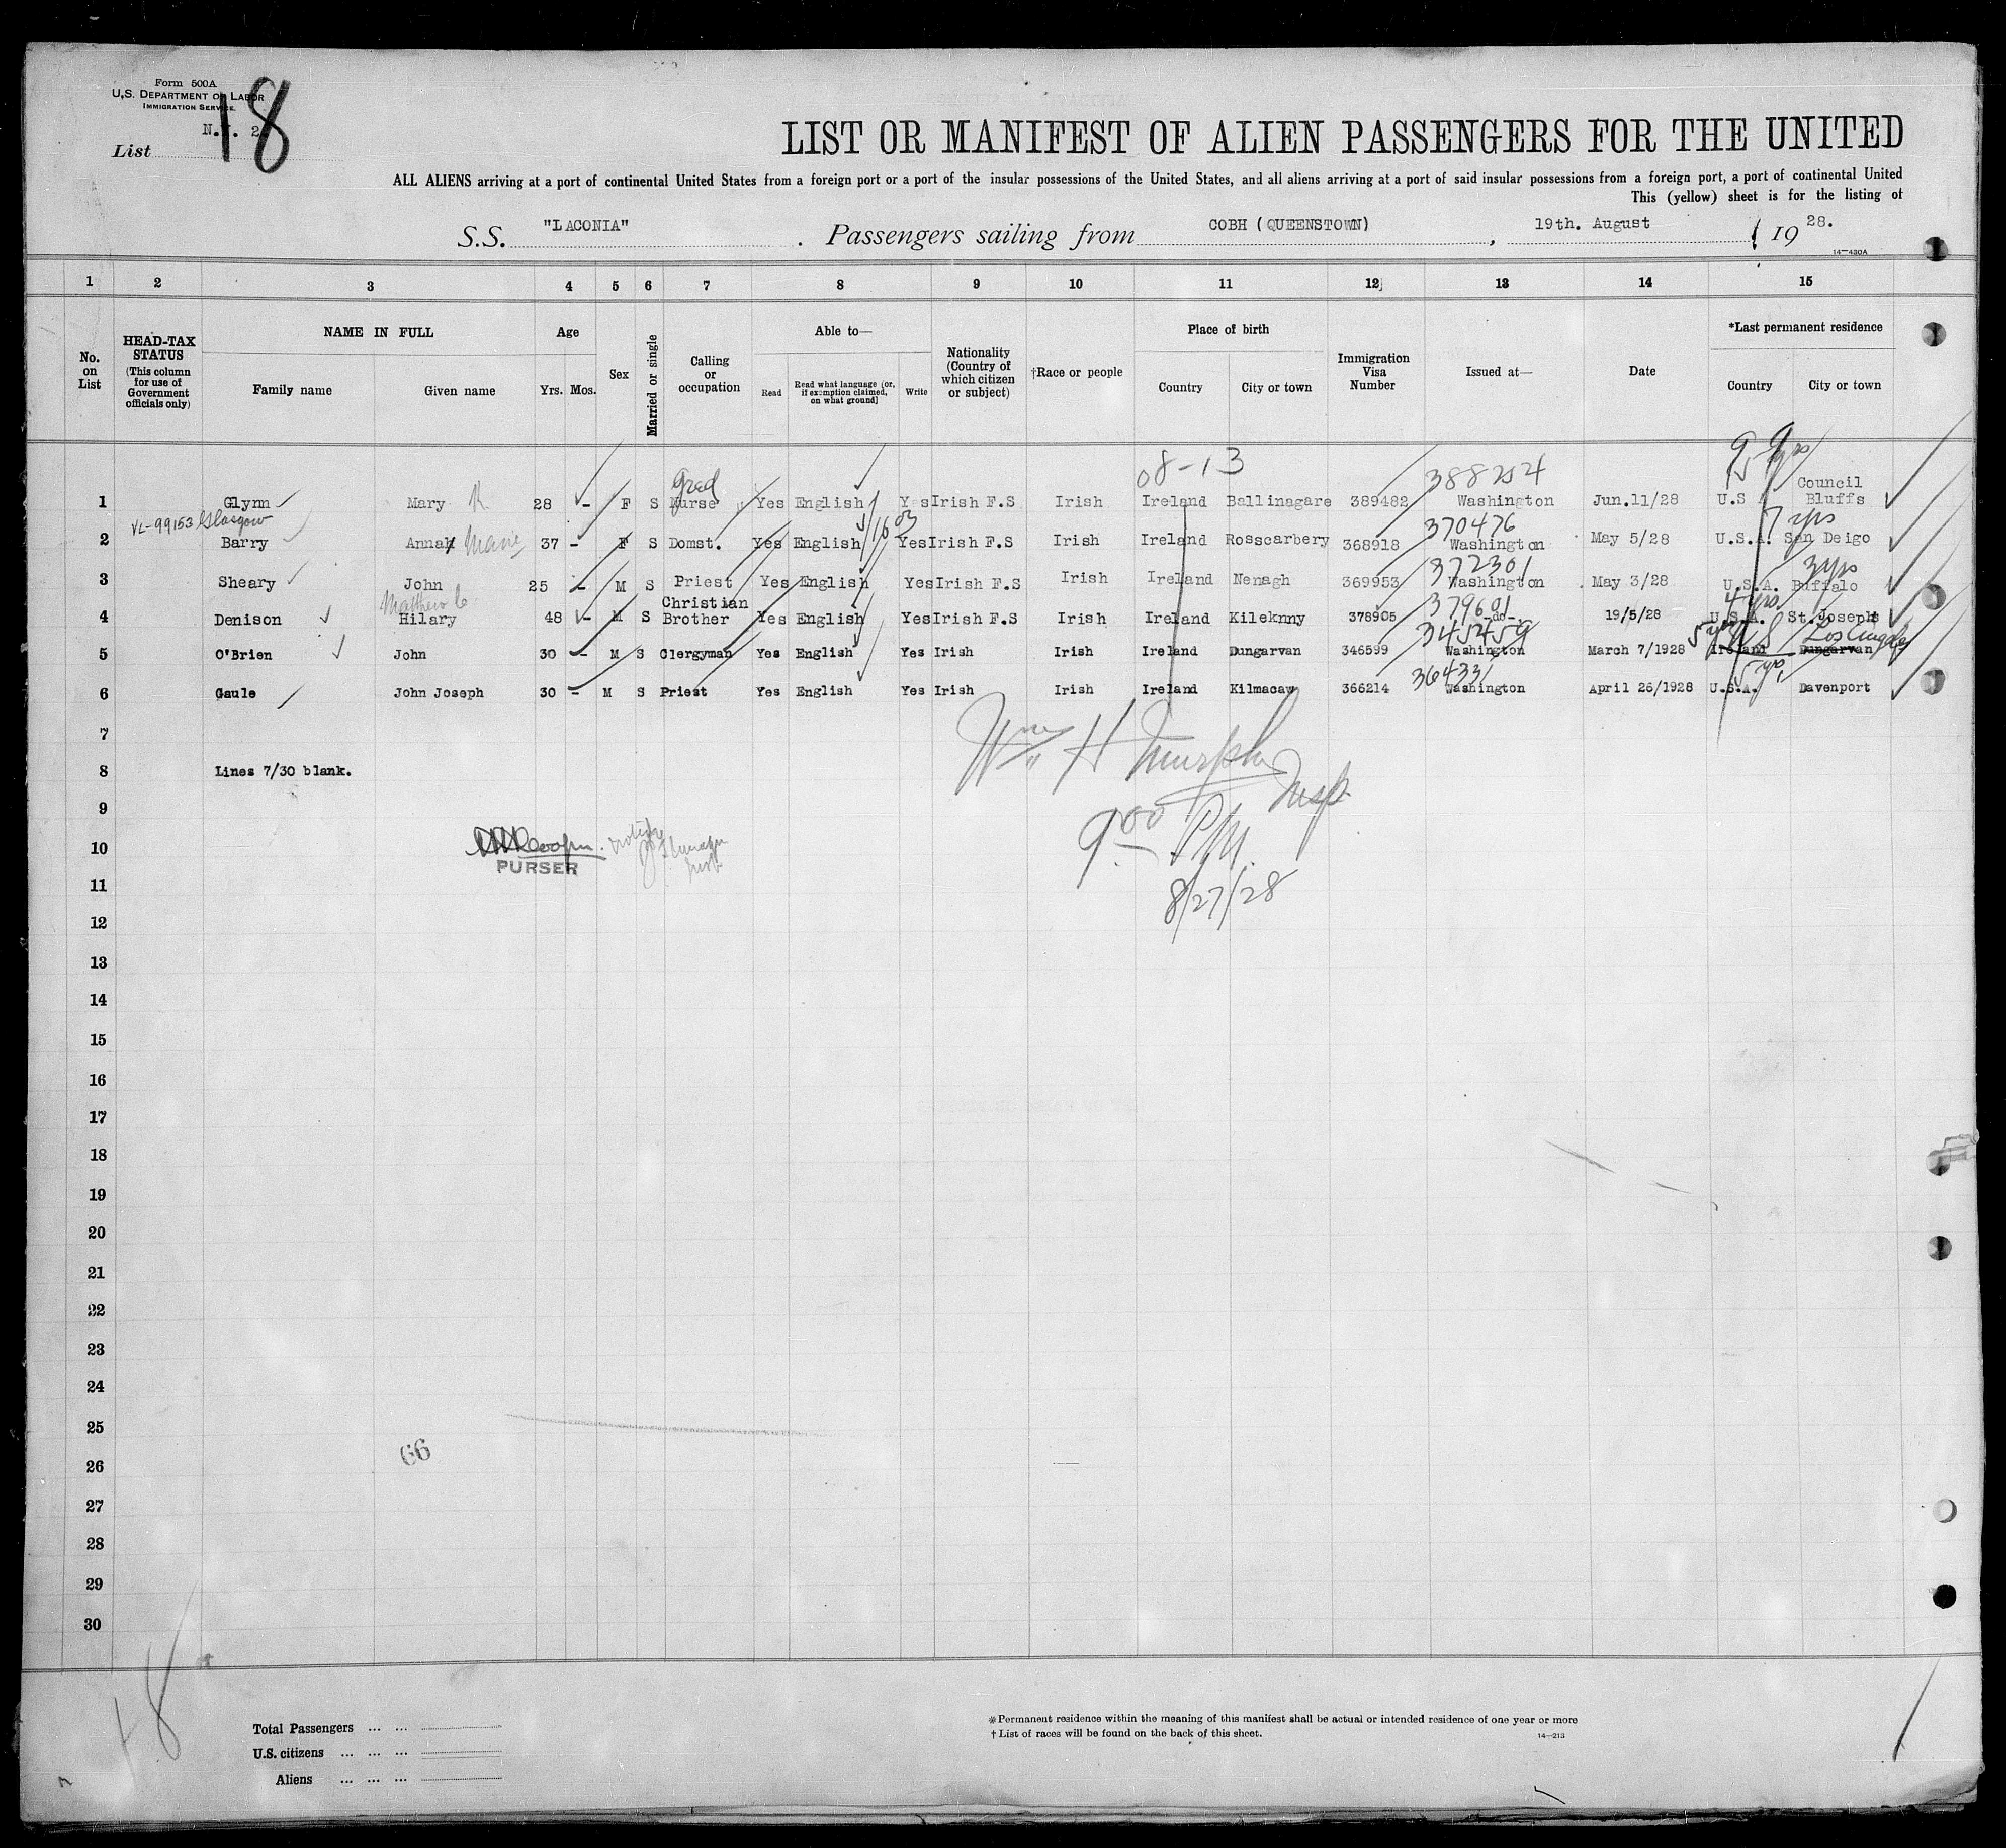 Form 500A
U.S. DEPARTMENT OF LABOR
IMMIGRATION SERVICE
N.Y. 2
List 18
LIST OR MANIFEST OF ALIEN PASSENGERS FOR THE UNITED
ALL ALIENS arriving at a port of continental United States from a foreign port or a port of the insular possessions of the United States, and all aliens arriving at a port of said insular possessions from a foreign port, a port of continental United
This (yellow) sheet is for the listing of
S.S. "LACONIA" . Passengers sailing from COBH (QUEENSTOWN) , 19th. August 19 28.
14—430A
1 2 3 4 5 6 7 8 9 10 11 12 13 14 15
No. on List
HEAD-TAX STATUS (This column for use of Government officials only)
NAME IN FULL
Family name Given name
Age
Yrs. Mos.
Sex
Married or single
Calling or occupation
Able to—
Read Read what language [or, if exemption claimed, on what ground] Write
Nationality (Country of which citizen or subject)
†Race or people
Place of birth
Country City or town
Immigration Visa Number
Issued at—
Date
*Last permanent residence
Country City or town
08-13
grad 388254 9 yrs
1 Glynn Mary K. 28 - F S Nurse Yes English Yes Irish F.S Irish Ireland Ballinagare 389482 Washington Jun.11/28 U.S Council Bluffs
VL-99153 Glasgow 370476 7 yrs
2 Barry Annah Marie 37 - F S Domst. Yes English Yes Irish F.S Irish Ireland Rosscarbery 368918 Washington May 5/28 U.S.A. San Deigo
372301 3 yrs
3 Sheary John 25 - M S Priest Yes English Yes Irish F.S Irish Ireland Nenagh 369953 Washington May 3/28 U.S.A. Buffalo
Matthew C. 379601 4 yrs
4 Denison Hilary 48 - M S Christian Brother Yes English Yes Irish F.S Irish Ireland Kileknny 378905 -do- 19/5/28 U.S.A. St.Joseph
345459 5 yrs U S Los Angeles
5 O'Brien John 30 - M S Clergyman Yes English Yes Irish Irish Ireland Dungarvan 346599 Washington March 7/1928 Ireland Dungarvan
364331 5 yrs
6 Gaule John Joseph 30 - M S Priest Yes English Yes Irish Irish Ireland Kilmacaw 366214 Washington April 26/1928 U.S.A. Davenport
7
8 Lines 7/30 blank.
Wm H Murphy
Insp
9
9 00 P.M.
10
PURSER
11
8/27/28
12
13
14
15
16
17
18
19
20
21
22
23
24
25
66
26
27
28
29
30
18
Total Passengers ... ...
U.S. citizens ... ... ...
Aliens ... ... ...
* Permanent residence within the meaning of this manifest shall be actual or intended residence of one year or more
† List of races will be found on the back of this sheet.
14—213